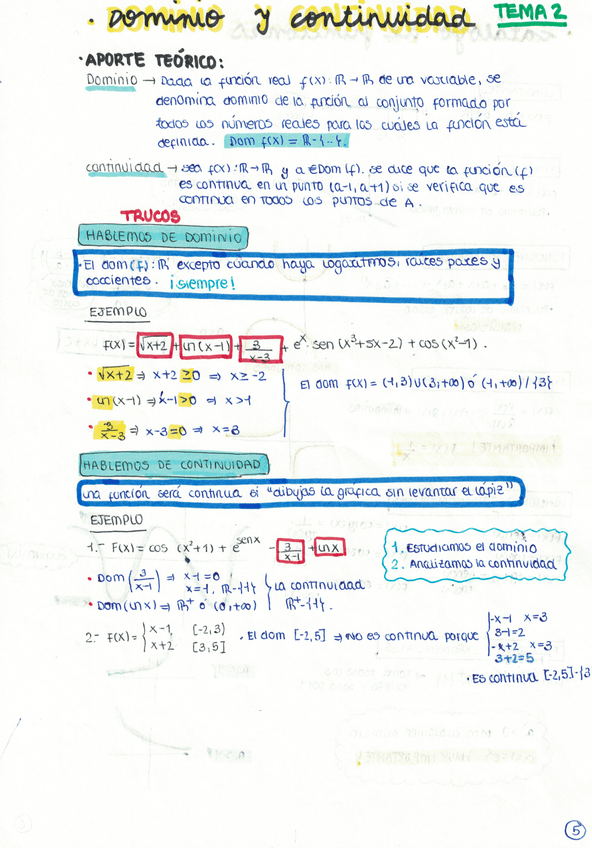 · DOMINIO Y CONTINUIDAD TEMA 2
· APORTE TEÓRICO:
Dominio → Dada la función real f(x): ℝ → ℝ de una variable, se
denomina dominio de la función al conjunto formado por
todos los números reales para los cuáles la función está
definida. Dom f(x) = ℝ - {..}.
Continuidad → sea f(x): ℝ → ℝ y a ∈ Dom(f). se dice que la función (f)
es continua en un punto (a-1, a+1) si se verifica que es
continua en todos los puntos de A.
TRUCOS
HABLEMOS DE DOMINIO
· El dom(f): ℝ excepto cuando haya logaritmos, raíces pares y
cocientes. ¡siempre!
EJEMPLO
f(x) = √x+2 + ln(x-1) + 3/x-3 + eˣ · sen(x³+5x-2) + cos(x²-1).
• √x+2 ⇒ x+2 ≥ 0 ⇒ x ≥ -2
• ln(x-1) ⇒ x-1 > 0 ⇒ x > 1
• 3/x-3 ⇒ x-3 = 0 ⇒ x = 3
El dom f(x) = (-1,3) ∪ (3,+∞) ó (-1,+∞) / {3}
HABLEMOS DE CONTINUIDAD
una función será continua si "dibujas la gráfica sin levantar el lápiz"
EJEMPLO
1.- F(x) = cos (x²+1) + e^senx - 3/x-1 + ln x
1. Estudiamos el dominio
2. Analizamos la continuidad
• Dom (3/x-1) ⇒ x-1 = 0
x = 1, ℝ-{1}
• Dom (ln x) ⇒ ℝ⁺ ó (0,+∞)
La continuidad
ℝ⁺-{1}.
2.- F(x) = { x-1, [-2,3)
x+2 [3,5]
· El dom [-2,5] ⇒ No es continua porque
-x-1 x=3
3-1=2
-x+2 x=3
3+2=5
· Es continua [-2,5]-{3
5